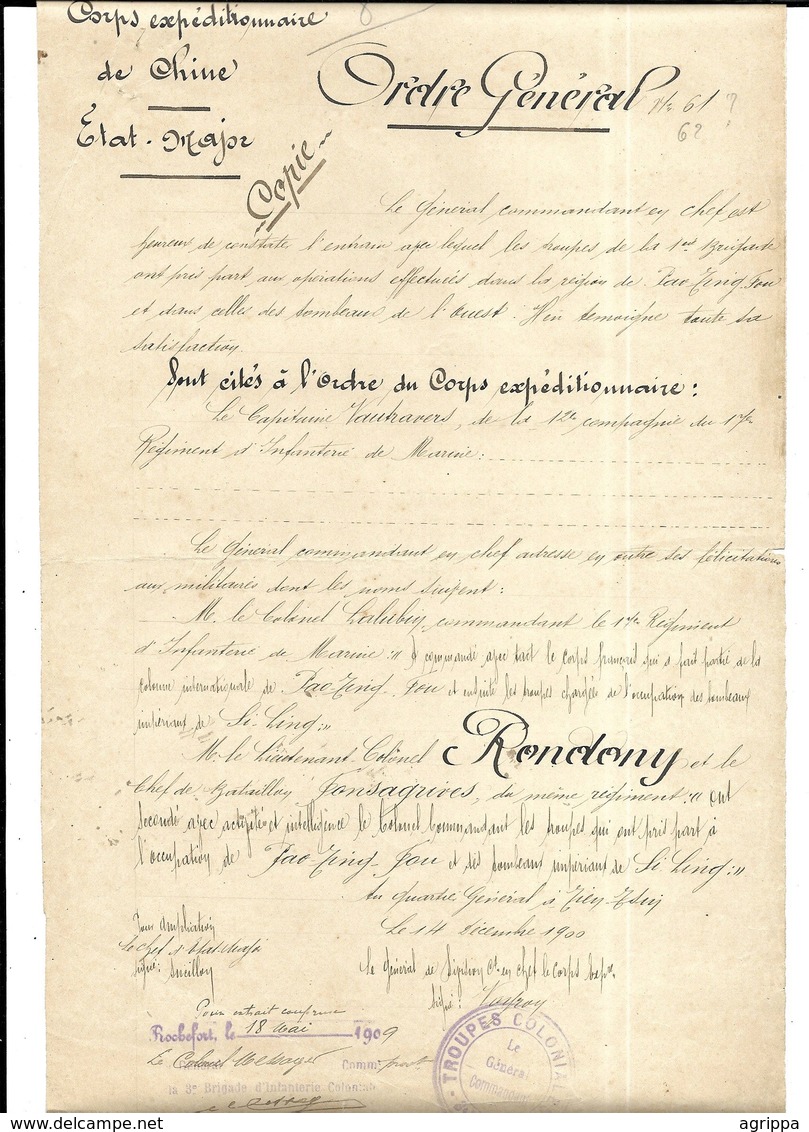 Corps expéditionnaire
de Chine
Etat-Major
Ordre Général No 61 ?
62
Copie
Le Général commandant en chef est
heureux de constater l'entrain avec lequel les troupes de la 1ère Brigade
ont pris part aux opérations effectuées dans la région de Pao-Ting-Fou
et dans celles des tombeaux de l'Ouest. Il en témoigne toute sa
satisfaction.
Sont cités à l'Ordre du Corps expéditionnaire :
Le Capitaine Vautravers, de la 12e compagnie du 17e
Régiment d'Infanterie de Marine :
Le Général commandant en chef adresse en outre ses félicitations
aux militaires dont les noms suivent :
M. le Colonel Lalubin, commandant le 17e Régiment
d'Infanterie de Marine : "A commandé avec tact le corps français qui a fait partie de la
colonne internationale de Pao-Ting-Fou et ensuite les troupes chargées de l'occupation des tombeaux
impériaux de Si-Ling ;"
M. le Lieutenant-Colonel Rondony et le
Chef de Bataillon Fonsagrives, du même régiment : "ont
secondé avec activité et intelligence le Colonel Commandant les troupes qui ont pris part à
l'occupation de Pao-Ting-Fou et des tombeaux impériaux de Si-Ling ;"
Au Quartier Général à Tien-Tsin
Le 14 Décembre 1900
Pour ampliation
Le chef d'Etat-Major
Signé :
Le Général de Division Ct en chef le corps expre
Signé : Voyron
Pour extrait conforme
Rochefort, le 18 Mai 1909
Le Colonel Comm
la 3e Brigade d'Infanterie Coloniale
TROUPES COLONIALES
Le
Général
Commandant
agrippa